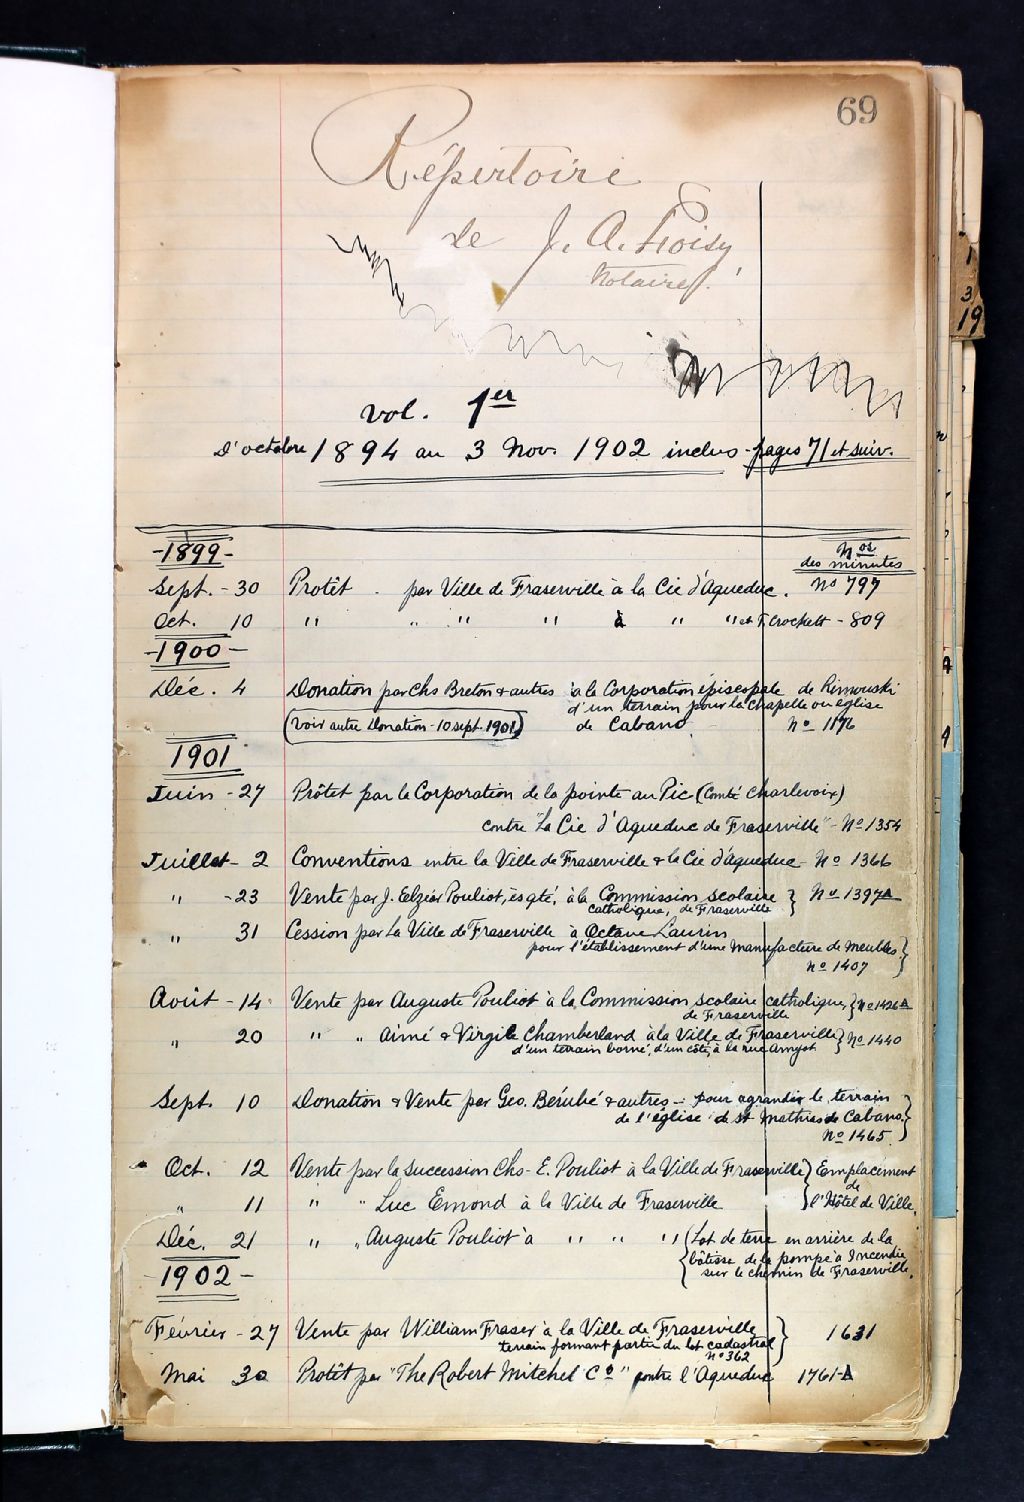 69
Répertoire
de J. A. Froisy
Notaire.
vol. 1er
D'octobre 1894 au 3 Nov. 1902 inclus - pages 71 et suiv.
-1899- Nos
des minutes
Sept. - 30 Protêt par Ville de Fraserville à la Cie d'Aqueduc. No 797
Oct. 10 " " " " à " " et T. Crockett - 809
-1900-
Déc. 4 Donation par Chs Breton & autres à la Corporation épiscopale de Rimouski
d'un terrain pour la Chapelle ou église
(Voir autre Donation - 10 sept. 1901) de Cabano. No 1176
1901
Juin - 27 Prôtet par la Corporation de la pointe au Pic (Comté Charlevoix)
contre "La Cie d'Aqueduc de Fraserville" - No 1354
Juillet - 2 Conventions entre la Ville de Fraserville & la Cie d'aqueduc - No 1366
" - 23 Vente par J. Elzéar Pouliot, ès qté, à la Commission scolaire } No 1397A
catholique, de Fraserville
" 31 Cession par La Ville de Fraserville à Octave Laurin
pour l'établissement d'une Manufacture de Meubles }
No 1407
Août - 14 Vente par Auguste Pouliot à la Commission scolaire catholique, } No 1426A
de Fraserville
" 20 " " Aimé & Virgile Chamberland à la Ville de Fraserville } No 1440
d'un terrain borné, d'un côté, à la rue Amyot
Sept. 10 Donation & Vente par Geo. Bérubé & autres - pour agrandir le terrain
de l'église de St Mathias de Cabano. }
No 1465
Oct. 12 Vente par la succession Chs-E. Pouliot à la Ville de Fraserville } Emplacement
de
" 11 " " Luc Emond à la Ville de Fraserville } l'Hôtel de Ville.
Déc. 21 " " Auguste Pouliot à " " " { Lot de terre en arrière de la
bâtisse de la pompe à Incendie
-1902- sur le chemin de Fraserville.
Février - 27 Vente par William Fraser à la Ville de Fraserville } 1631
terrain formant partie du lot cadastral
No 362
Mai 30 Protêt par "The Robert Mitchel Co" contre l'Aqueduc 1761-A